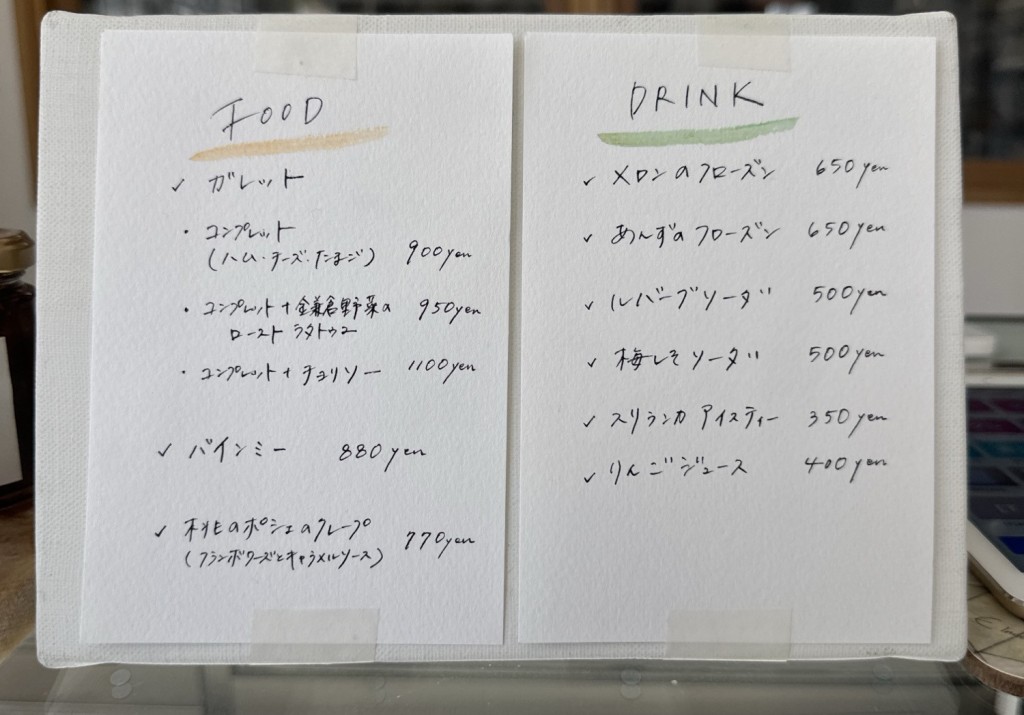 FOOD
✓ ガレット
・コンプレット
(ハム・チーズ・たまご) 900yen
・コンプレット+鎌倉野菜の 950yen
ロースト ラタトゥユ
・コンプレット+チョリソー 1100yen
✓ バインミー 880yen
✓ 桃のポシェのクレープ 770yen
(フランボワーズとキャラメルソース)
DRINK
✓ メロンのフローズン 650yen
✓ あんずのフローズン 650yen
✓ ルバーブソーダ 500yen
✓ 梅しそソーダ 500yen
✓ スリランカ アイスティー 350yen
✓ りんごジュース 400yen